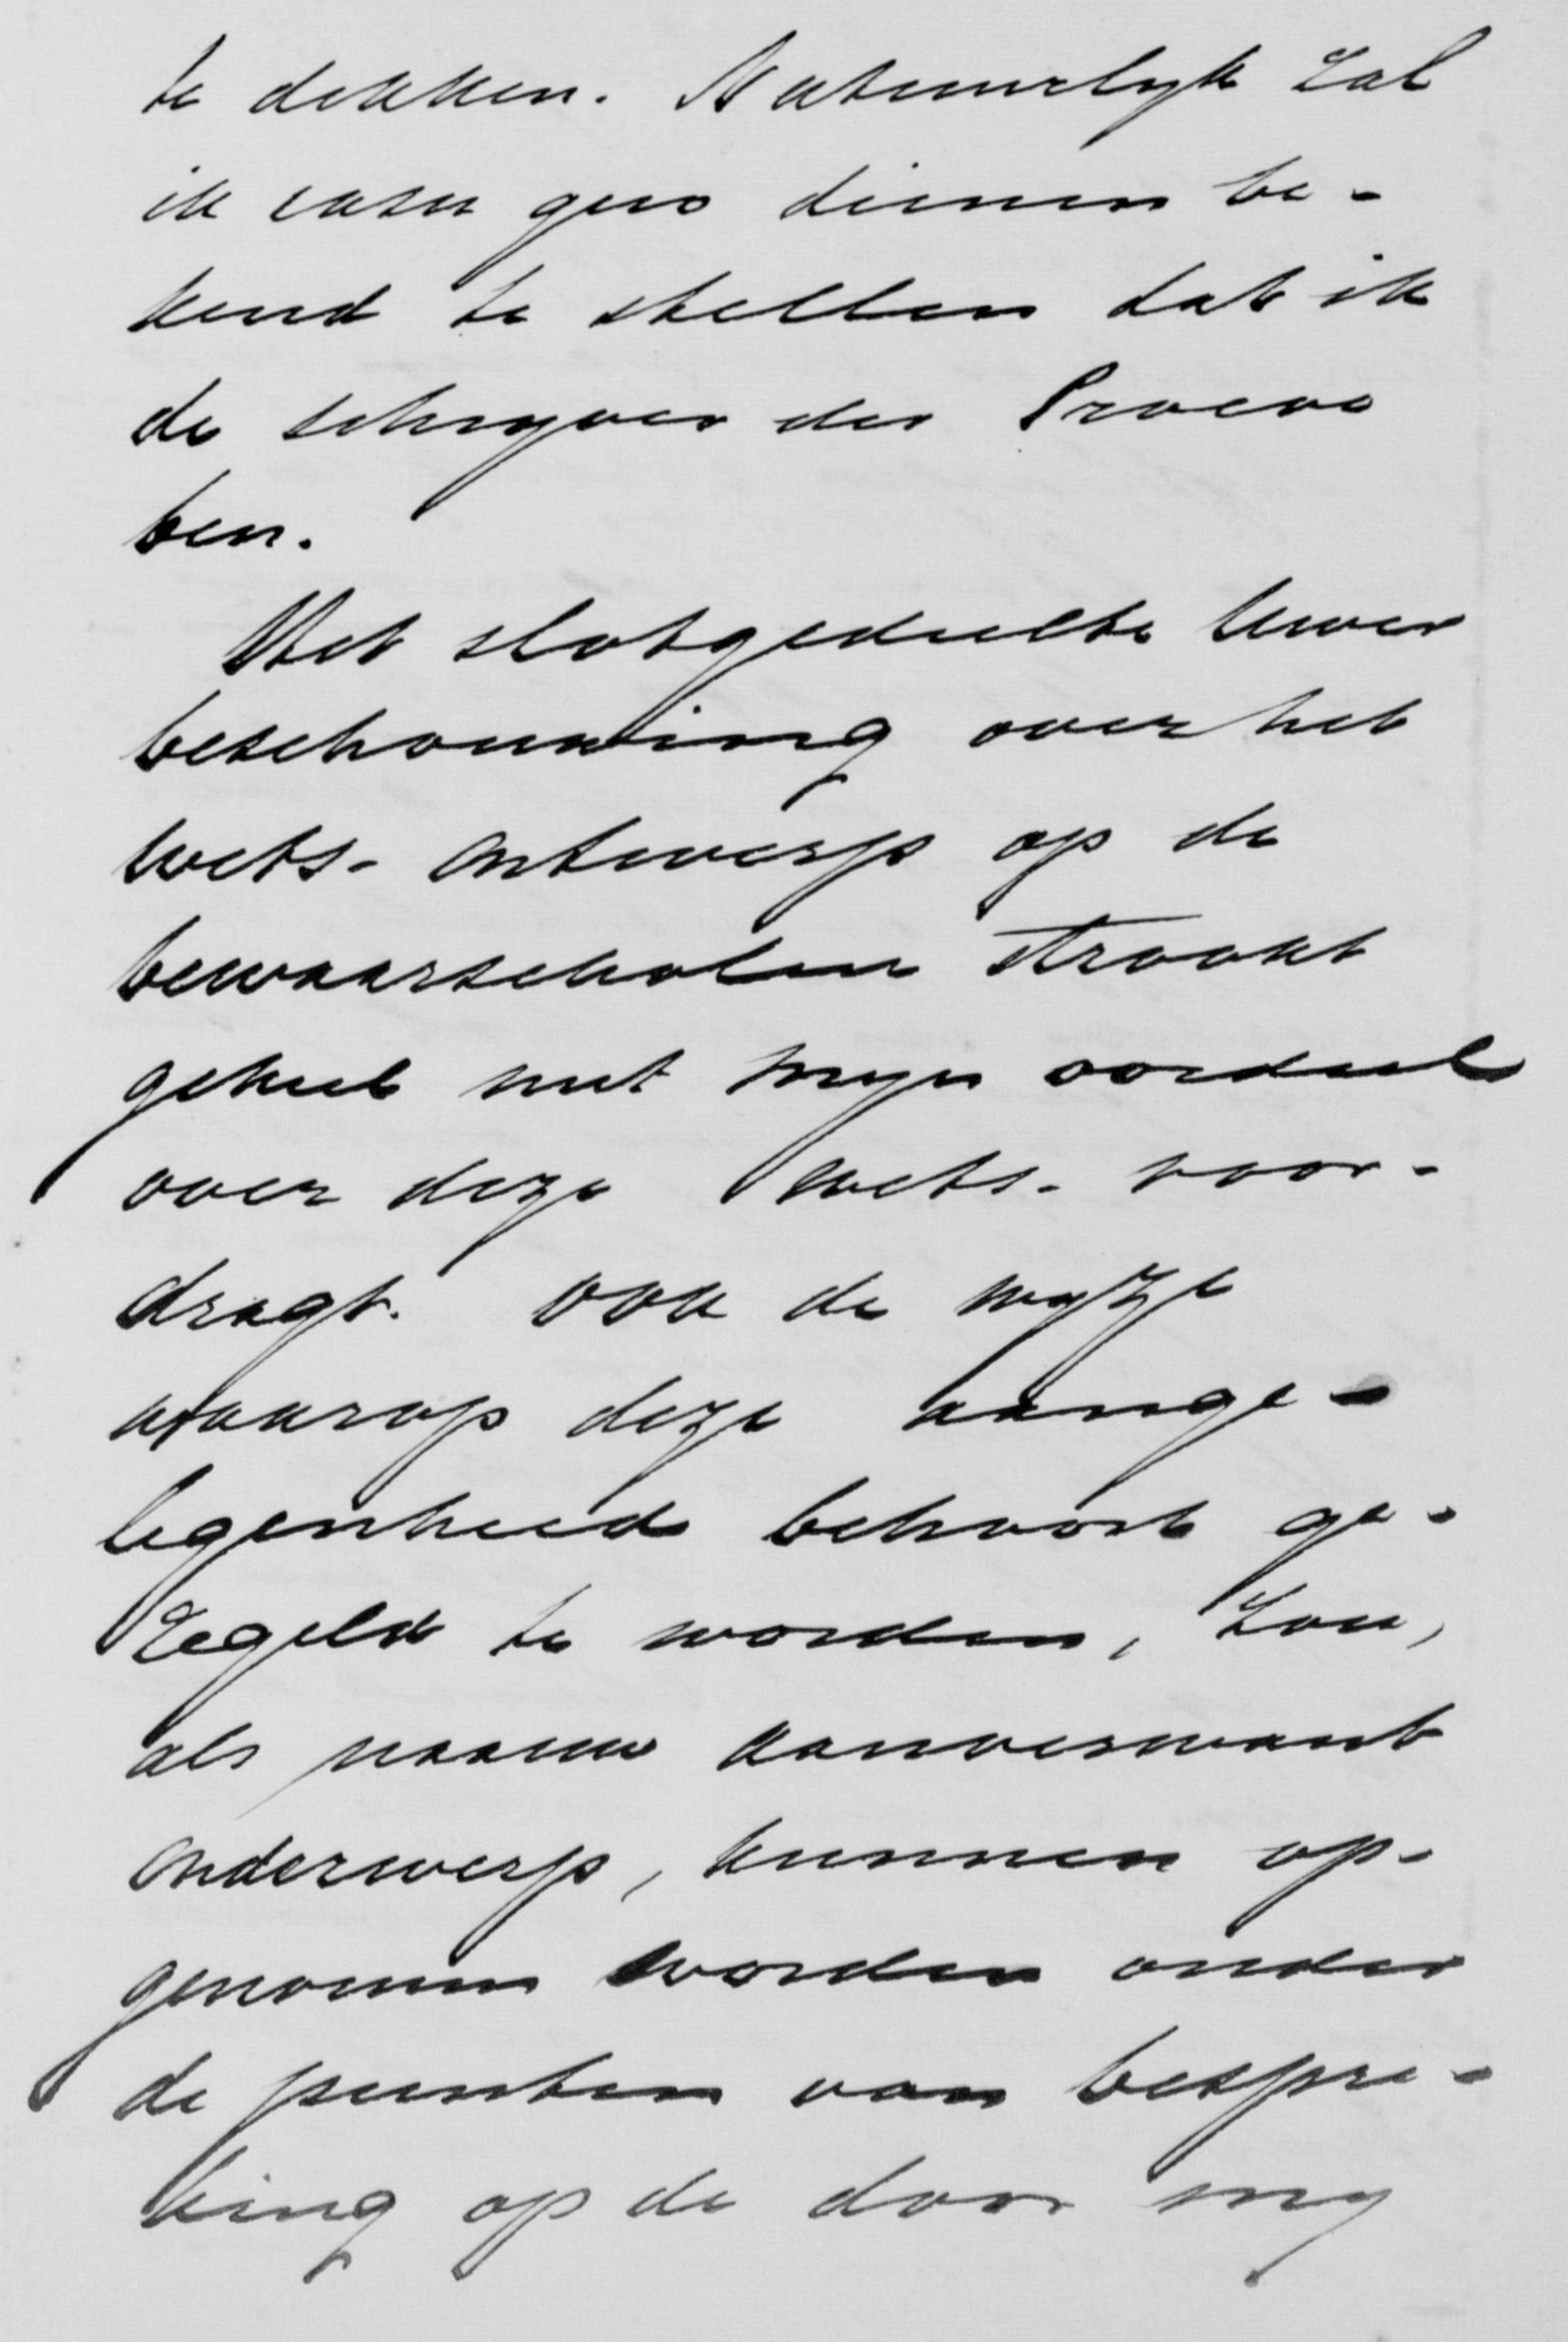 te dekken. Natuurlyk zal
ik casu quo dienen be-
kend te stellen dat ik
de schryver der Proeve
ben.
Het slotgedeelte Uwer
beschouwing over het
wets-ontwerp op de
bewaarscholen strookt
geheel met myn oordeel
over deze wets-voor-
dragt. Ook de wyze
waarop deze aange-
legenheid behoort ge-
regeld te worden, zou,
als naauw aanverwant
onderwerp, kunnen op-
genomen worden onder
de punten van bespre-
king op de door my